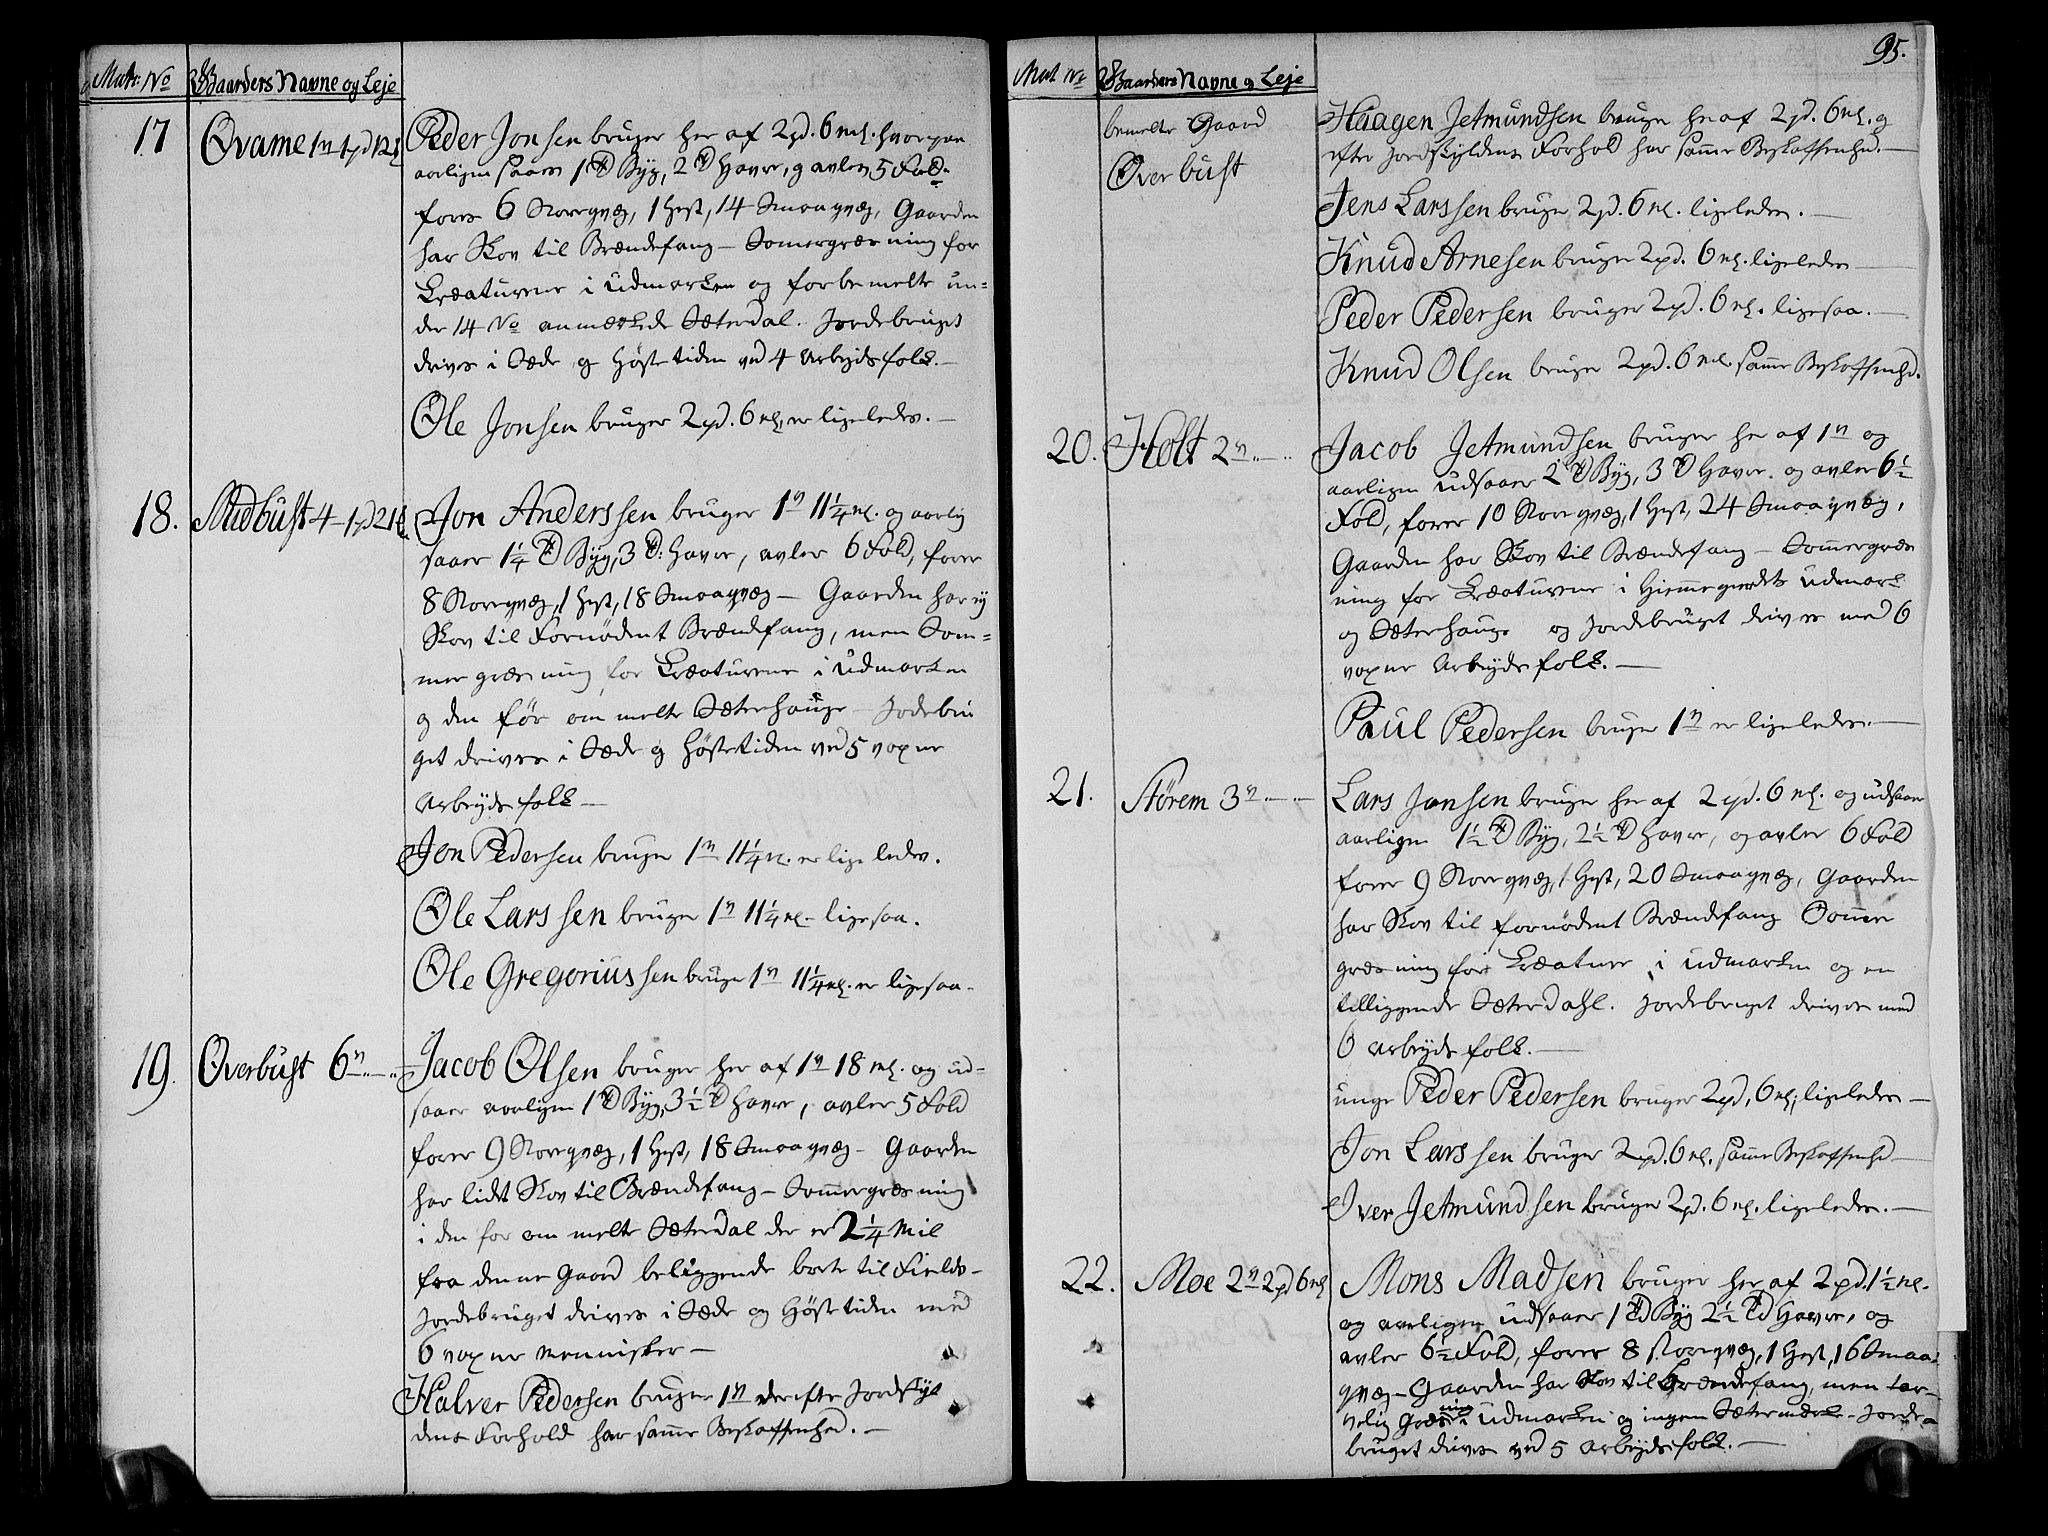 Matr: No Gaarders Navne og Leje
17 Qvame 1n 1pd 12
Peder Jonsen bruger her af 2pd. 6 mk. hvorpaa
aarligen saaes 1 Td Byg, 2 Td Havre, og avler 5 Fold.
fores 6 Storeqvæg, 1 Hest, 14 Smaaqvæg, Gaarden
har Skov til Brændefang – Somergræsning for
Creaturene i Udmarken og forbemelte un-
der 14 No anmærkede Sæterdal. Jordebruget
drives i Sæde og Høstetiden ved 4 Arbeydsfolk. –
Ole Jonsen bruger 2pd. 6 mk, er ligeledes. –
18. Midbust 4 – 1pd 21
Jon Anderssen bruger 1n 11 1/4 mk. og aarlig
saaer 1 1/4 Td Byg, 3 Td: Havre, avler 6 Fold, forer
8 Storeqvæg, 1 Hest, 18 Smaaqvæg – Gaarden har ej
Skov til Fornødent Brændefang, men Som-
mergræsning for Creaturene i Udmarken
og den før ommelte Sæterhauge – Jordebru
get drives i Sæde og Høstetiden ved 5 voxne
Arbeydsfolk –
Jon Pedersen bruger 1n 11 1/4 mk. er ligeledes.
Ole Larssen bruger 1n 11 1/4 mk – ligesaa.
Ole Gregoriussen bruger 1n 11 1/4 mk. er ligesaa.
19. Overbust 6n „ – „
Jacob Olsen bruger her af 1n 18 mk. og ud-
saaer aarligen 1 Td Byg, 3 1/2 Td Havre, avler 5 Fold
forer 9 Storeqvæg, 1 Hest, 18 Smaaqvæg – Gaarden
har lidt Skov til Brændefang – Sommergræsning
i den for ommelte Sæterdal der er 2 1/4 Mil
fra denne Gaard beliggende borte til Fields –
Jordebruget drives i Sæde og Høstetiden med
6 voxne Mennisker –
Halver Pedersen bruger 1n der efter Jordskyl
dens Forhold har samme Beskaffenhed. –
95.
Mat No Gaarders Navne og Leje
bemelte Gaard
Overbust
Haagen Jetmundsen bruger her af 2pd. 6 mk. og
efter Jordskyldens Forhold har samme Beskaffenhed. –
Jens Larssen bruger 2pd. 6 mk. ligeledes. –
Knud Arnesen bruger 2pd. 6 mk. ligeledes –
Peder Pedersen bruger 2pd. 6 mk. ligesaa. –
Knud Olsen bruger 2pd. 6 mk. samme Beskaffenhed.
20. Holt 2n „ – „
Jacob Jetmundsen bruger her af 1n og
aarligen udsaaer 2 Td Byg, 3 Td Havre. og avler 6 1/2
Fold, forer 10 Storeqvæg, 1 Hest, 24 Smaaqvæg,
Gaarden har Skov til Brændefang – Sommergræs
ning for Creaturene i Hiemmegierdets Udmark
og Sæterhauge og Jordebruget drives med 6
voxne Arbeydsfolk. –
Paul Pedersen bruger 1n er ligeledes. –
21. Størem 3n „ – „
Lars Jonsen bruger her af 2pd. 6 mk. og udsaaer
aarligen 1 1/2 Td Byg, 2 1/2 Td Havre, og avler 6 Fold
forer 9 Storeqvæg, 1 Hest, 20 Smaaqvæg, Gaarden
har Skov til fornødent Brændefang Sommer
græsning for Creature i Udmarken og en
tilliggende Sæterdahl. Jordebruget drives med
6 Arbeydsfolk. –
unge Peder Pedersen bruger 2pd, 6 mk, ligeledes –
Jon Larssen bruger 2pd. 6 mk, samme Beskaffenhed –
Iver Jetmundsen bruger 2pd. 6 mk. ligeledes. –
22. Moe 2n 2pd 6 mk
Mons Madsen bruger her af 2pd. 1 1/2 mk.
og aarligen udsaaer 1 Td Byg 2 1/2 Td Havre, og
avler 6 1/2 Fold, forer 8 Storeqvæg, 1 Hest, 16 Smaa-
qvæg – Gaarden har Skov til Brændefang, men tar-
velig Græsning i Udmarken og ingen Sætermark – Jorde-
bruget drives ved 5 Arbeydsfolk. –